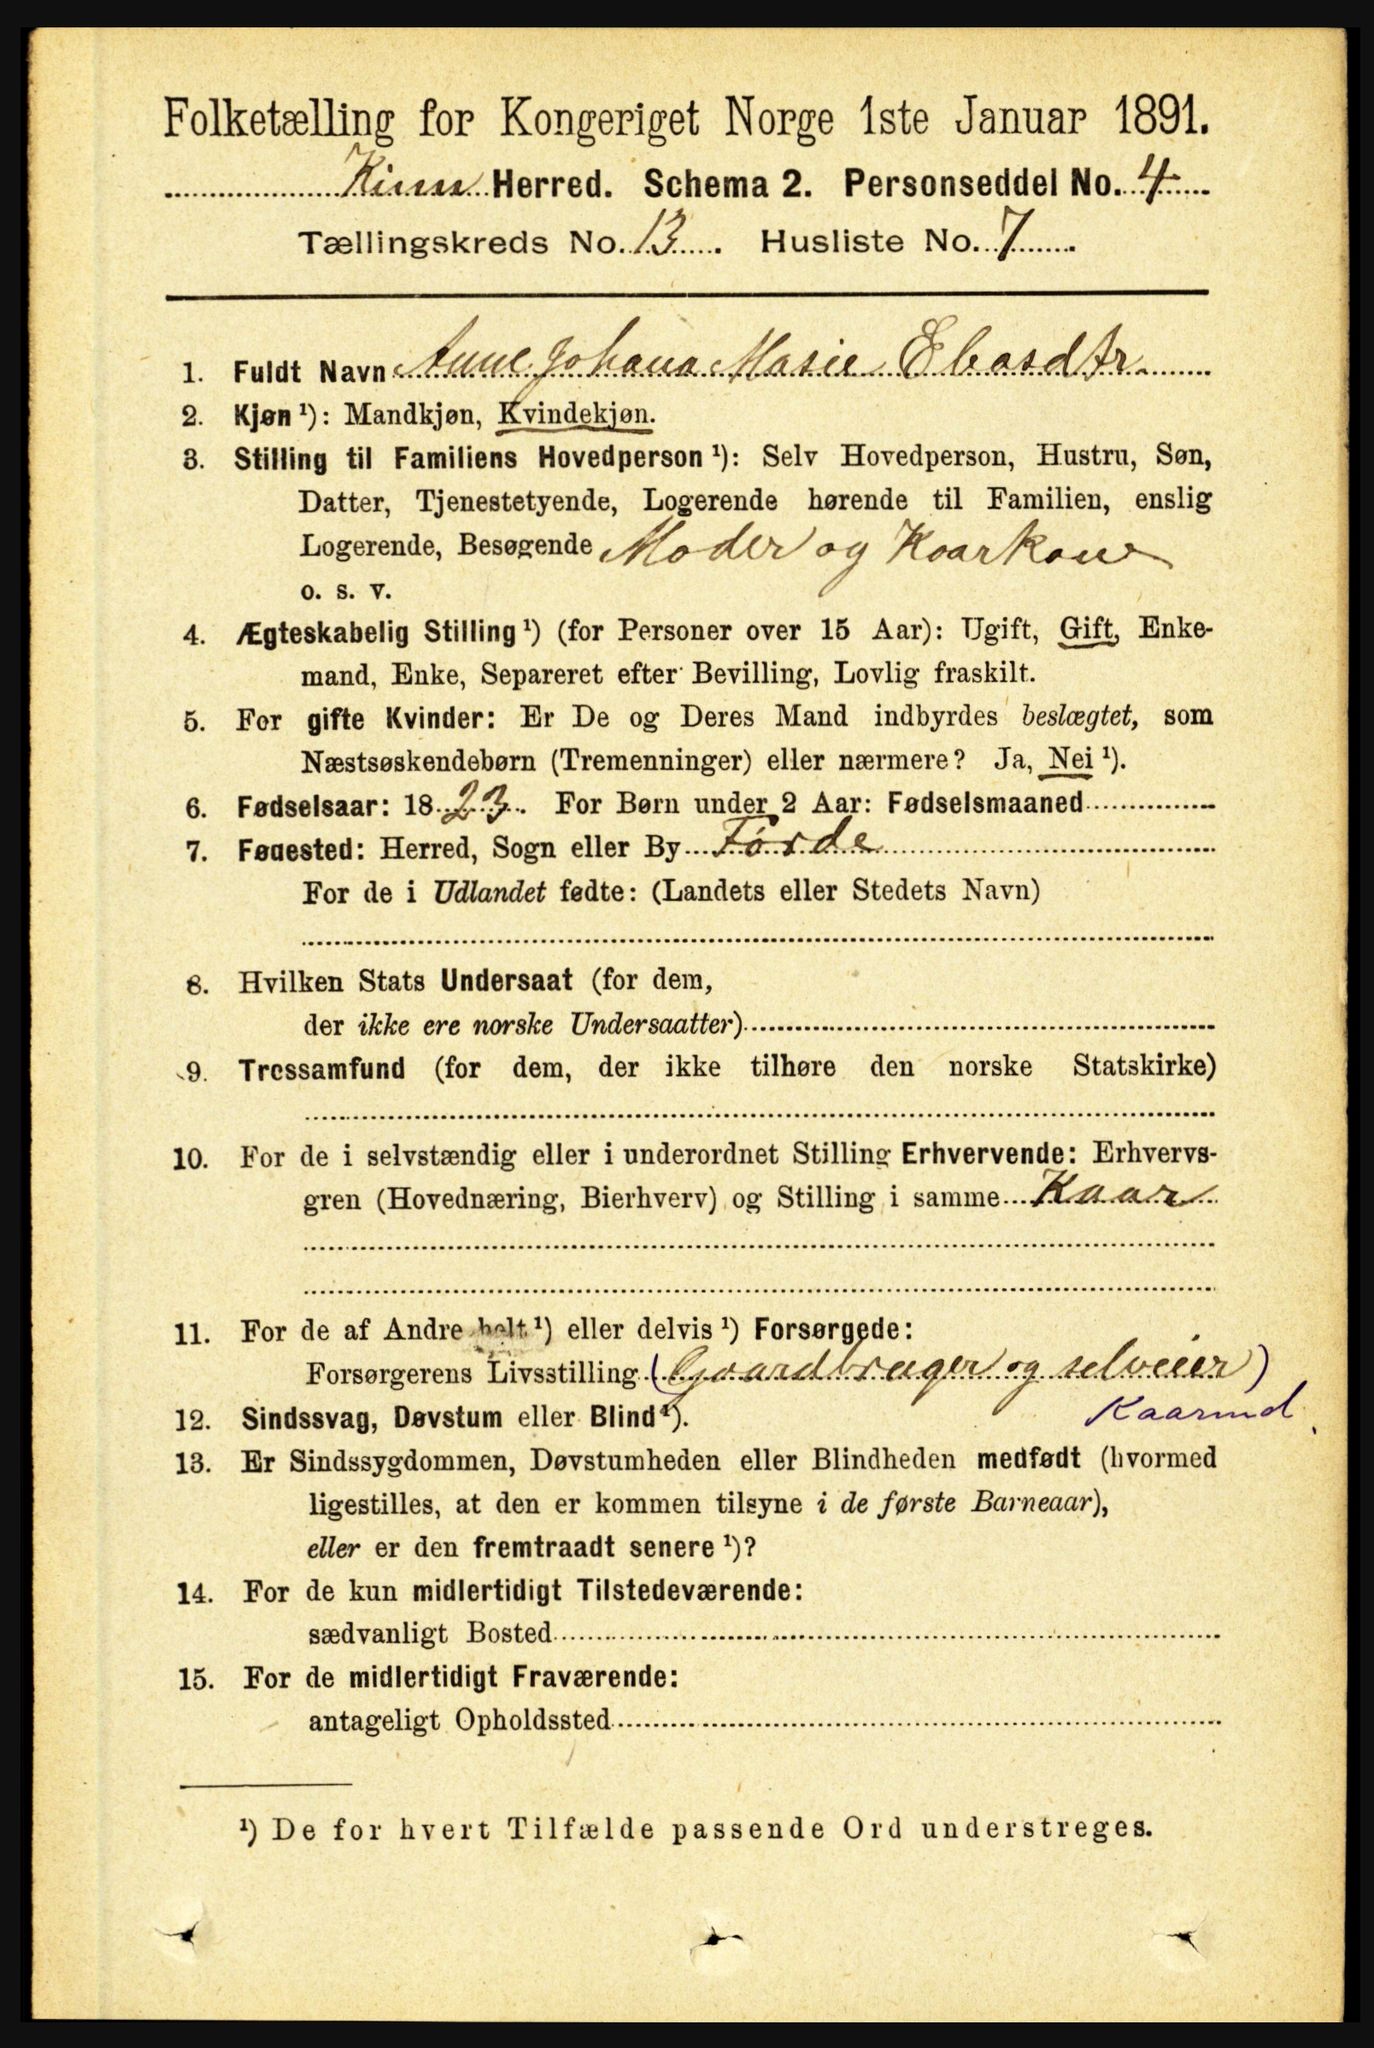 Folketælling for Kongeriget Norge 1ste Januar 1891.
Kinn Herred. Schema 2. Personseddel No. 4
Tællingskreds No. 13. Husliste No. 7
1. Fuldt Navn Anne Johana Marie Ebasdtr.
2. Kjøn ¹): Mandkjøn, Kvindekjøn.
3. Stilling til Familiens Hovedperson ¹): Selv Hovedperson, Hustru, Søn,
Datter, Tjenestetyende, Logerende hørende til Familien, enslig
Logerende, Besøgende Moder og Kaarkone
o. s. v.
4. Ægteskabelig Stilling ¹) (for Personer over 15 Aar): Ugift, Gift, Enke-
mand, Enke, Separeret efter Bevilling, Lovlig fraskilt.
5. For gifte Kvinder: Er De og Deres Mand indbyrdes beslægtet, som
Næstsøskendebørn (Tremenninger) eller nærmere? Ja, Nei ¹).
6. Fødselsaar: 1823. For Børn under 2 Aar: Fødselsmaaned
7. Fødested: Herred, Sogn eller By Førde
For de i Udlandet fødte: (Landets eller Stedets Navn)
8. Hvilken Stats Undersaat (for dem,
der ikke ere norske Undersaatter)
9. Trossamfund (for dem, der ikke tilhøre den norske Statskirke)
10. For de i selvstændig eller i underordnet Stilling Erhvervende: Erhvervs-
gren (Hovednæring, Bierhverv) og Stilling i samme Kaar
11. For de af Andre helt ¹) eller delvis ¹) Forsørgede:
Forsørgerens Livsstilling (Gaardbruger og selveier)
Kaarmd.
12. Sindssvag, Døvstum eller Blind ¹).
13. Er Sindssygdommen, Døvstumheden eller Blindheden medfødt (hvormed
ligestilles, at den er kommen tilsyne i de første Barneaar),
eller er den fremtraadt senere ¹)?
14. For de kun midlertidigt Tilstedeværende:
sædvanligt Bosted
15. For de midlertidigt Fraværende:
antageligt Opholdssted
¹) De for hvert Tilfælde passende Ord understreges.